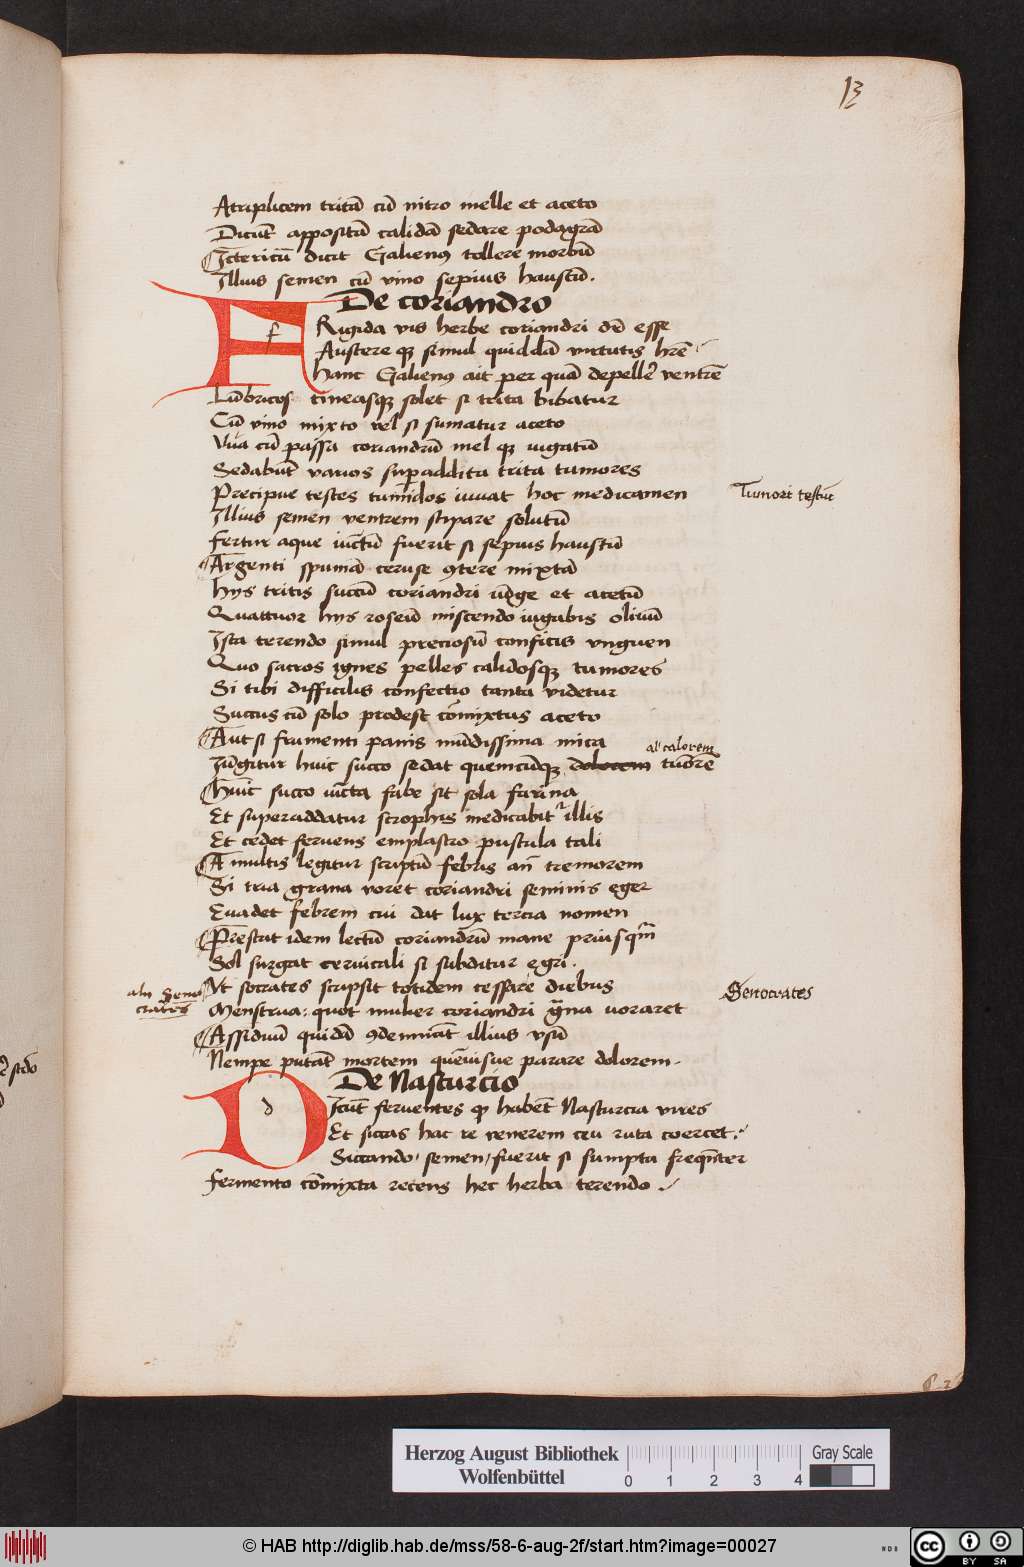 13
Atriplicem tritā cū nitro melle et aceto
Dicūt appositā calidā sedare podagrā
Ictericū dicit Galienꝰ tollere morbū
Illius semen cū vino sepius haustū.
De coriandro
f
Rigida vis herbe coriandri dē esse
Austere qꝫ simul quiddā virtutis hr̄e
hanc Galienꝰ ait per quā depelle᷑ ventrē
Lūbricos tineasqꝫ solet si trita bibatur
Cū vino mixto vel si sumatur aceto
Vua cū passa coriandrū mel qꝫ iugatū
Sedabūt varios suꝑaddita trita tumores
Precipue testes tumidos iuuat hoc medicamen
Tumori testiū
Illius semen ventrem stipare solutū
Fertur aque iūctū fuerit si sepius haustū
Argenti spumā ceruse ꝯtere mixtā
hijs tritis succū coriandri iūge et acetū
Quattuor hijs roseū miscendo iugabis oliuū
Ista terendo simul preciosū conficis vnguen
Quo sacros ignes pelles calidosqꝫ tumores
Si tibi difficilis confectio tanta videtur
Succus cū solo prodest cōmixtus aceto
Aut si frumenti panis mūdissima mica
al' calorem
Iūgitur huic succo sedat quemcūqꝫ dolorem tūorē
Huic succo iūcta fabe sit sola farina
Et superaddatur scrophis medicabit᷑ illis
Et cedet feruens emplastro pustula tali
A multis legitur scriptū febris an̄ tremorem
Si tria grana voret coriandri seminis eger
Euadet febrem cui dat lux tercia nomen
Prestat idem lectū coriandrū mane priusqᷓm
Sol surgat ceruicali si subditur egri.
Vt socrates scripsit totidem cessare diebus
Senocrates
alij Seno
crates
Menstrua: quot mulier coriandri gᷓna uoraret
Assiduū quidā ꝯdemnāt illius vsū
Nempe putāt mortem quēuisue parare dolorem.
De Nasturcio
d
Icūt feruentes qꝫ habēt Nasturcia vires
Et siccas hac re venerem ceu ruta coercet.
Siccando semen fuerit si sumpta freqn̄ter
Fermento cōmixta recens hec herba terendo.
Herzog August Bibliothek
Wolfenbüttel
0 1 2 3 4
Gray Scale
© HAB http://diglib.hab.de/mss/58-6-aug-2f/start.htm?image=00027
cc BY SA